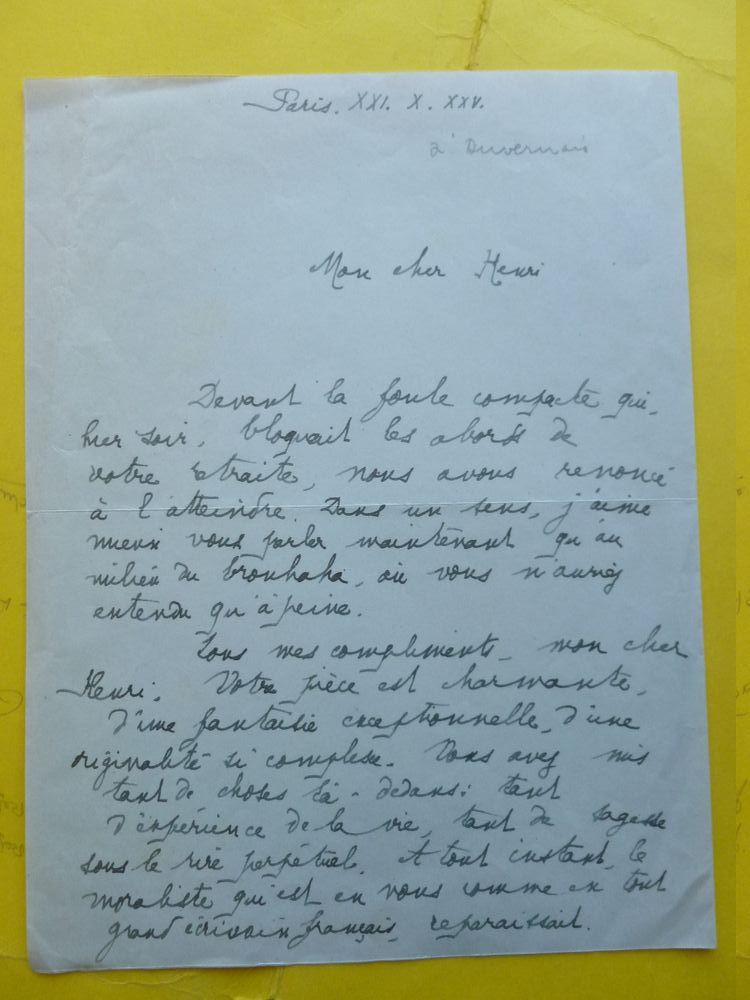 Paris. XXI. X. XXV.
à Duvernois
Mon cher Henri
Devant la foule compacte qui,
hier soir, bloquait les abords de
votre retraite, nous avons renoncé
à l'atteindre. Dans un sens, j'aime
mieux vous parler maintenant qu'au
milieu du brouhaha, où vous n'auriez
entendu qu'à peine.
Tous mes compliments, mon cher
Henri. Votre pièce est charmante,
d'une fantaisie exceptionnelle, d'une
originalité si complexe. Vous avez mis
tant de choses là-dedans: tant
d'expérience de la vie, tant de sagesse
sous le rire perpétuel. A tout instant, le
moraliste qui est en vous comme en tout
grand écrivain français, reparaissait.